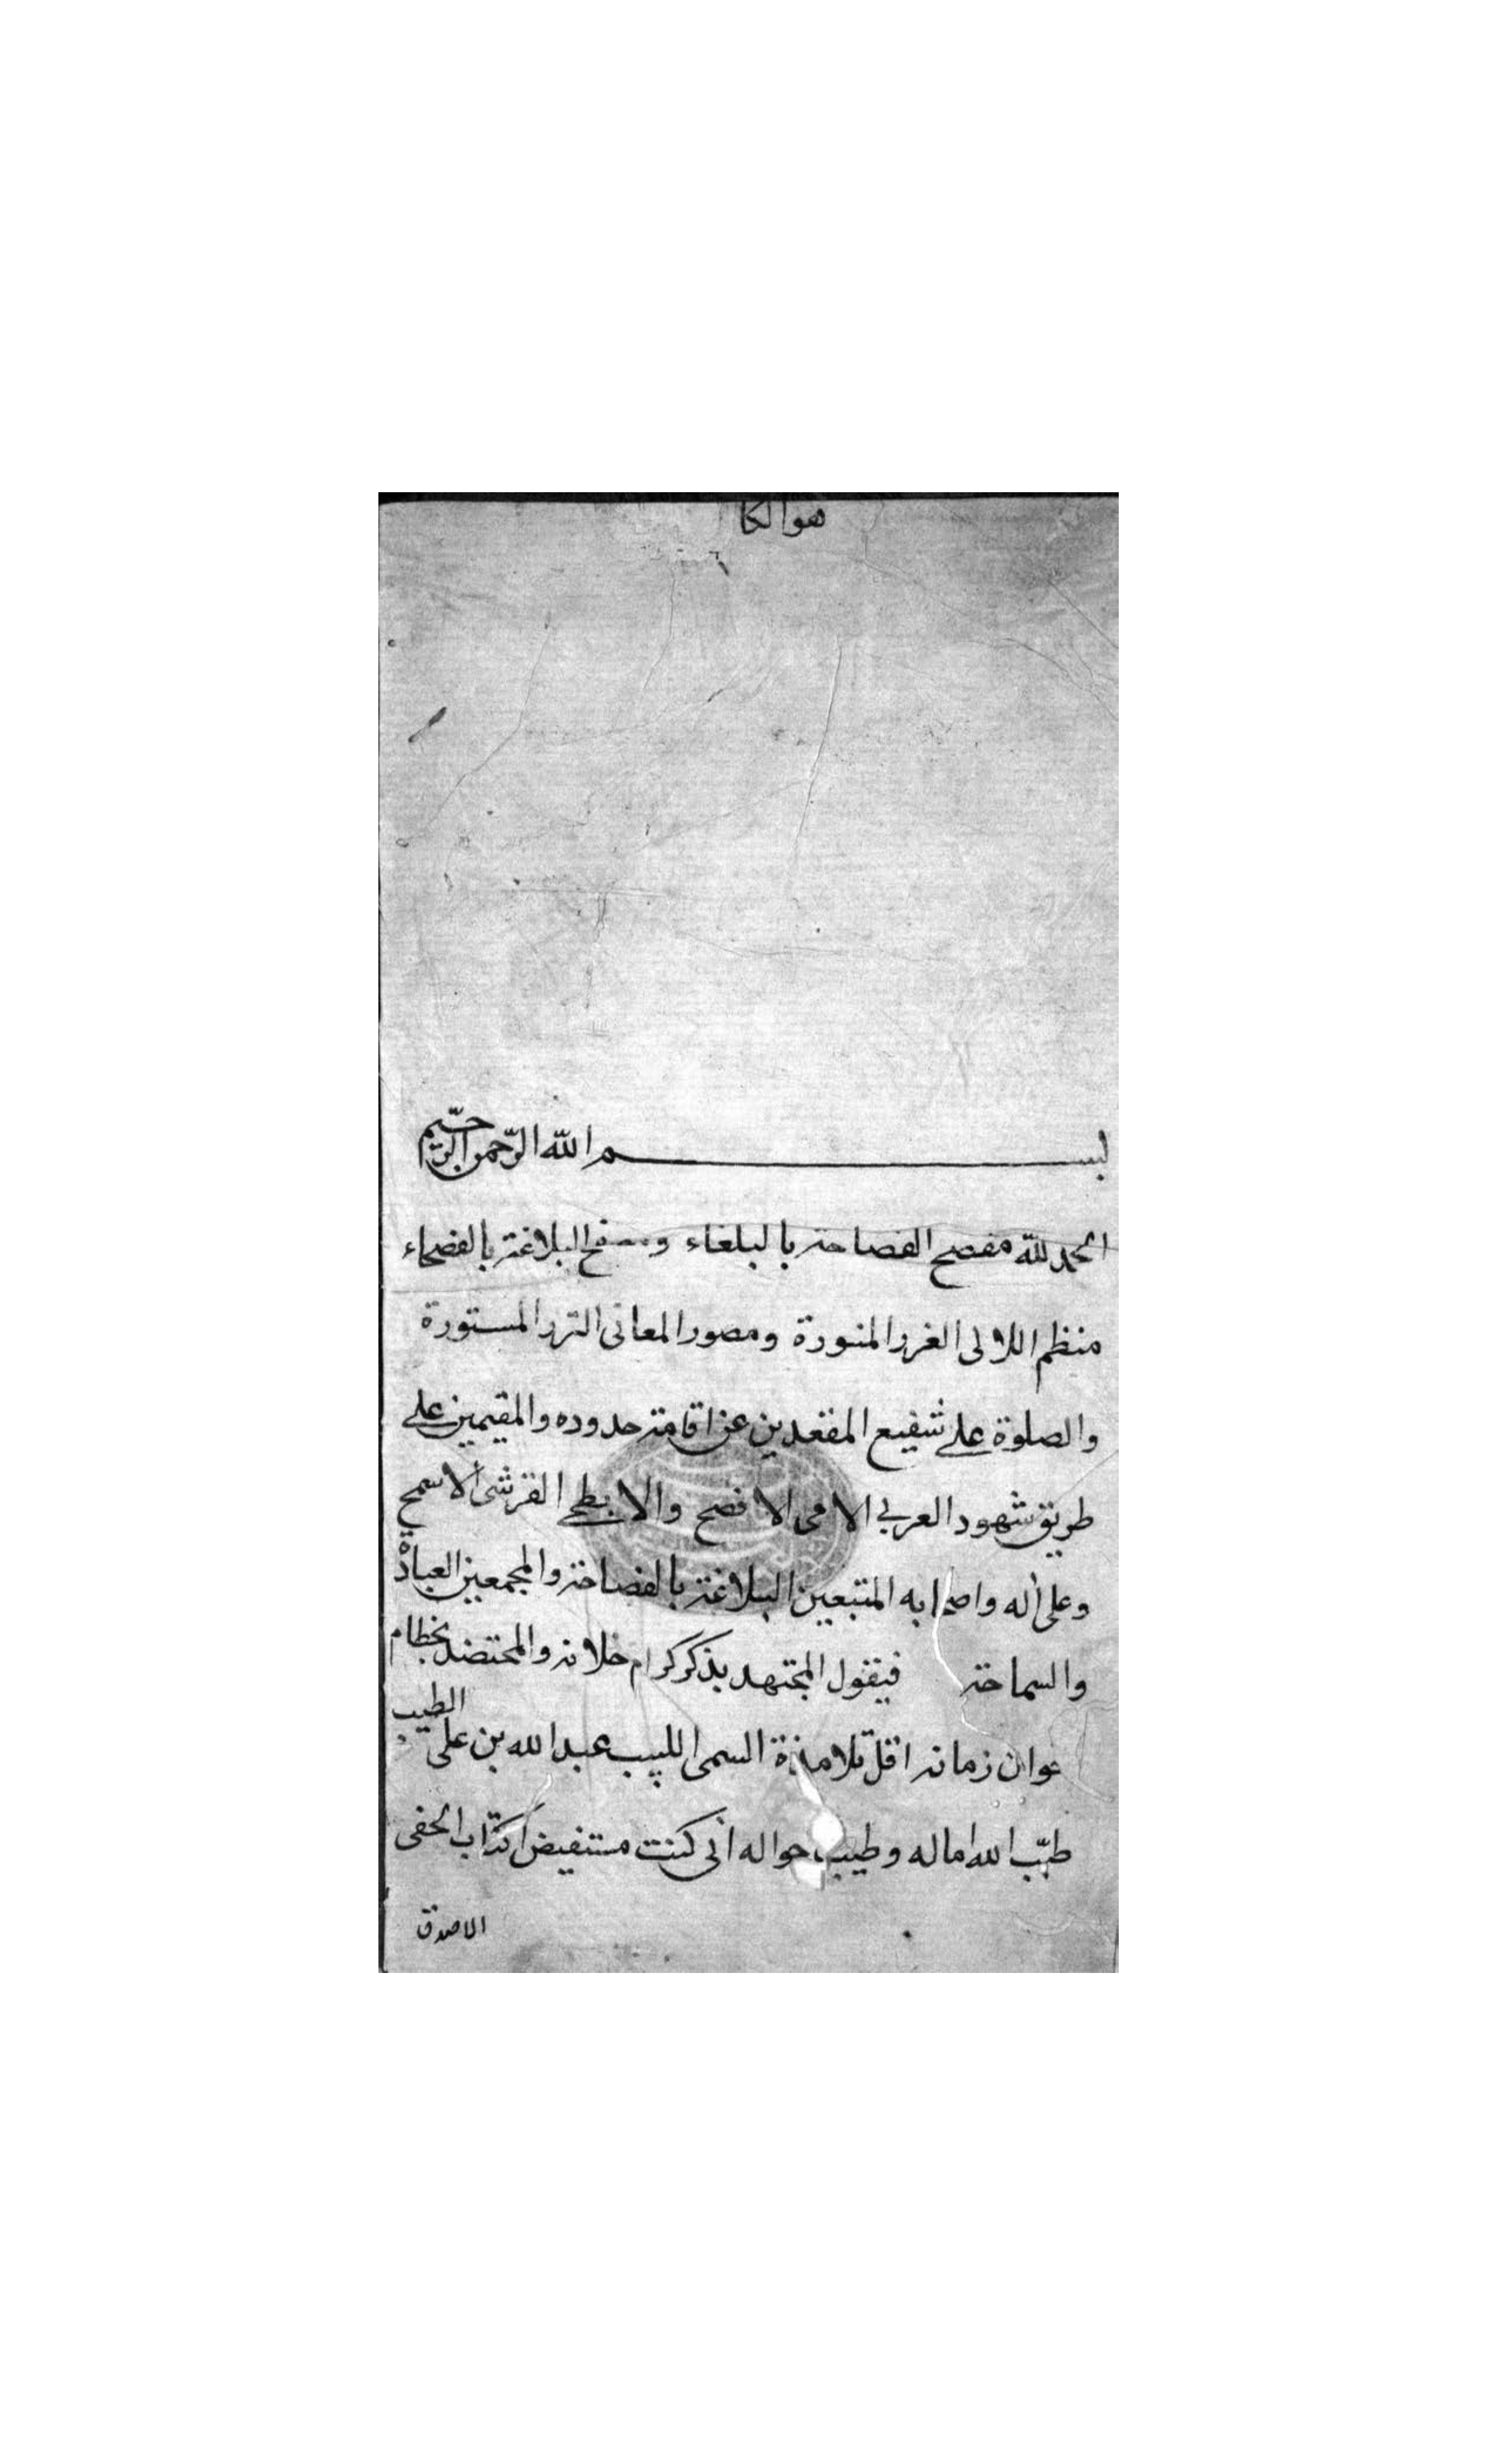 هو الكا
بسم الله الرّحمن الرّحيم
الحمد لله مفصح الفصاحة بالبلغاء ومصفح البلاغة بالفصحاء
منظم اللالى الغرر المنورة ومصور المعانى الترر المستورة
والصلوة على شفيع المقعدين عن اقامة حدوده والمقيمين على
طريق شهود العربي الامى الافصح والابطحى القرشى الاسمح
وعلى آله واصحابه المتبعين البلاغة بالفصاحة والمجمعين العبادة
والسماحة فيقول المجتهد بذكر كرام خلانه والمحتضد بخطام
عوان زمانه اقل تلامذة السمى اللبيب عبد الله بن على الطيب
طيّب الله اماله وطيب حواله أنى كنت مستفيض اكتاب الحفى
الاصدق